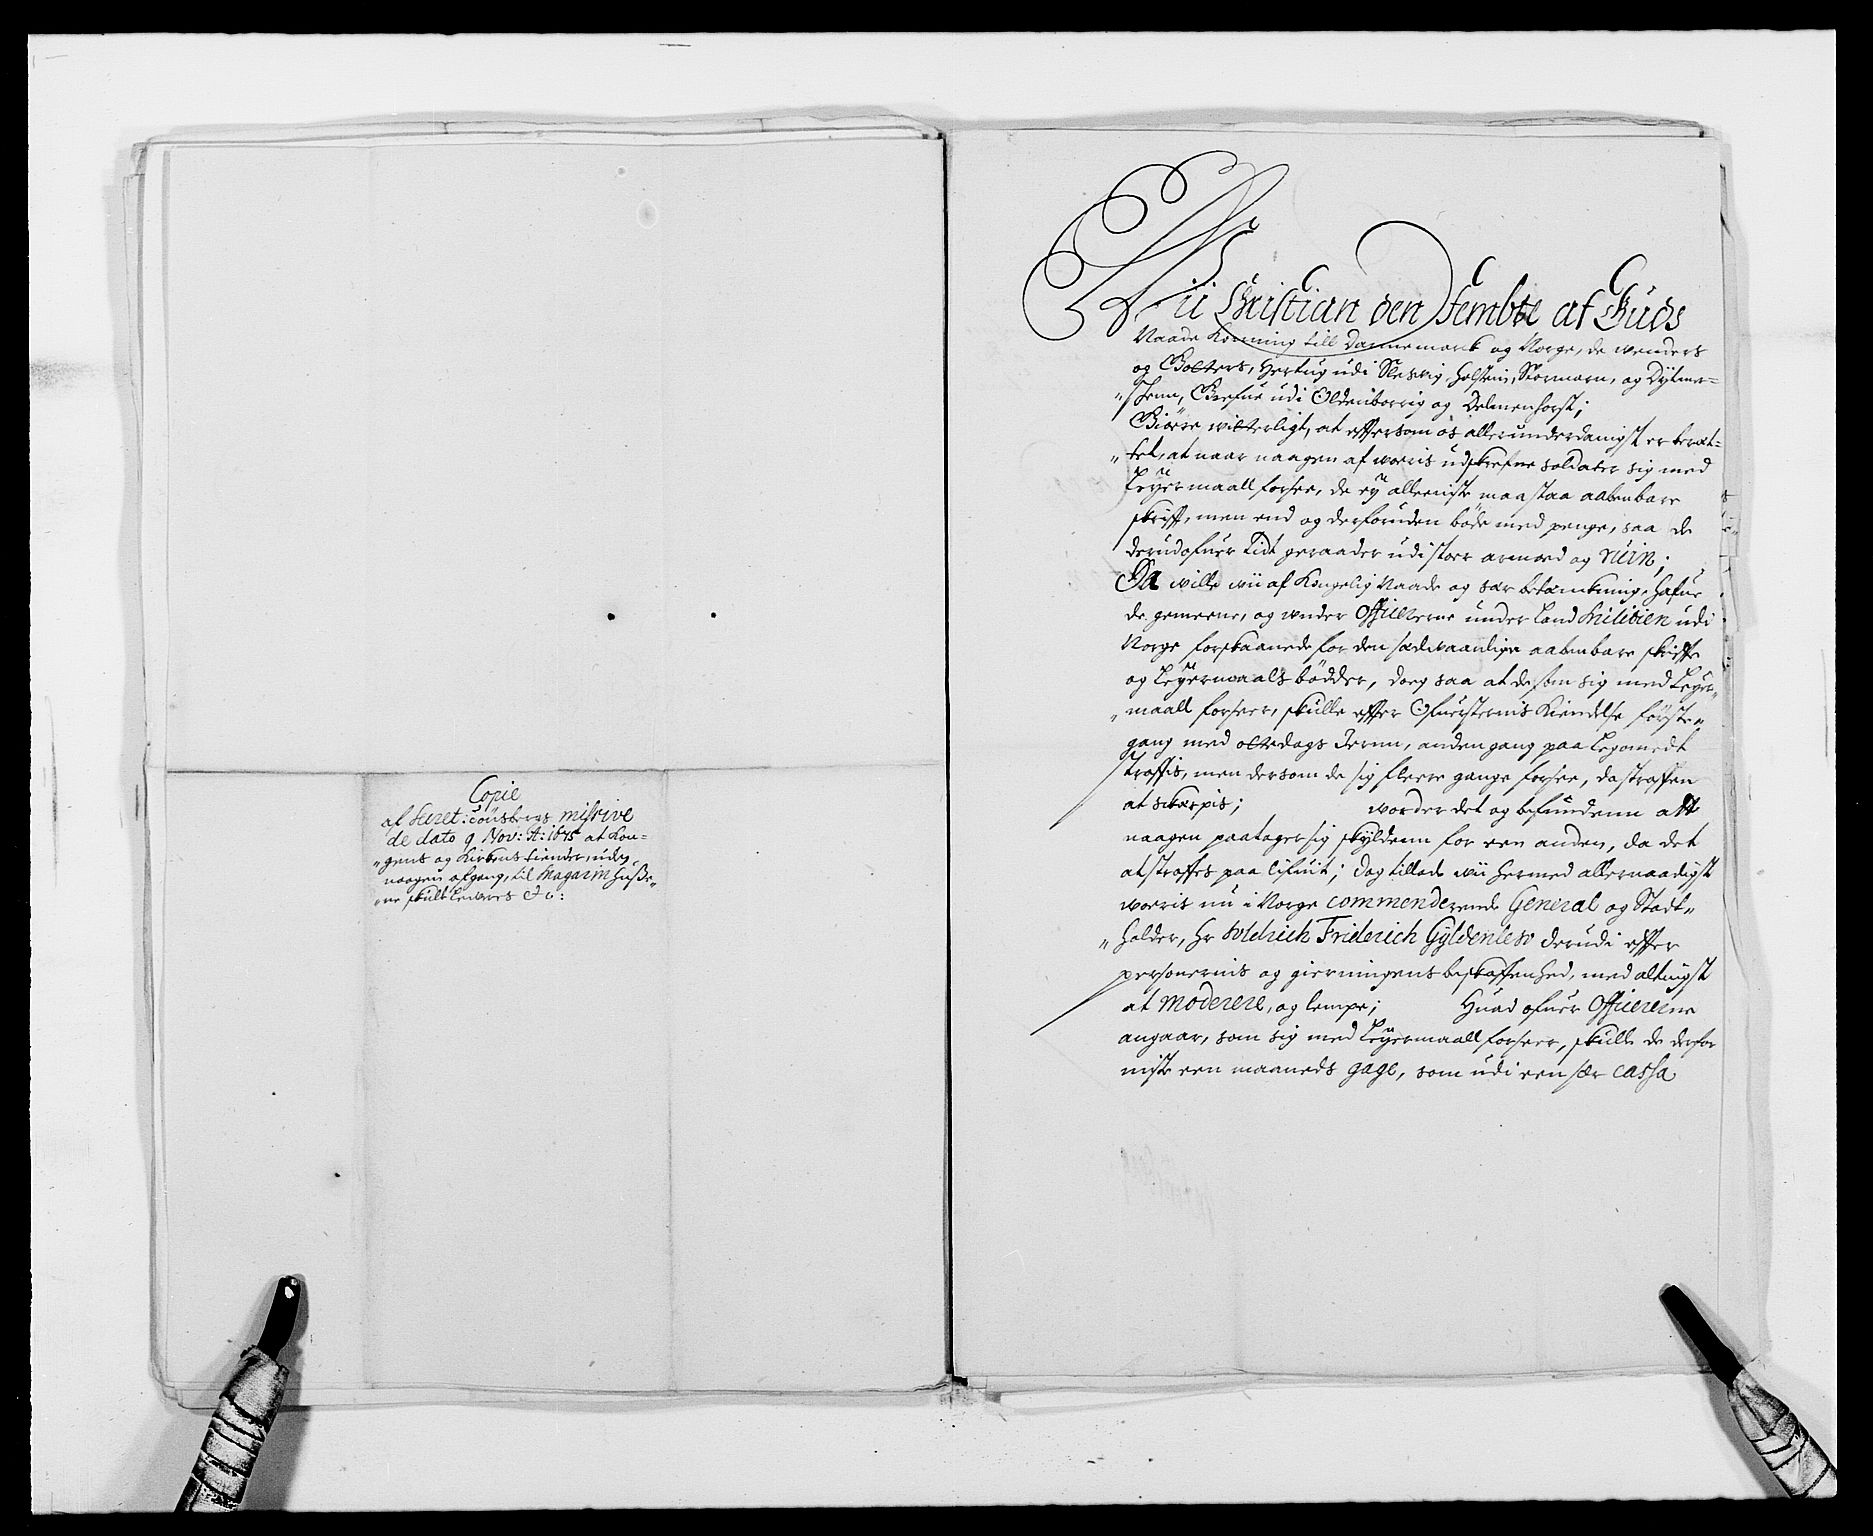 Copie
af Secret: Tönsbergs missive
de dato 9 Nov: A: 1675 at Kon=
"gens og Kirkens tiender, uden
naagen afgang, til Magazin Huße„
„ne skulle leveres &c:
Wii Christian den Fembte af Guds
Naade Konning till Dannemark og Norge, de Wenders
og Gotters, Hertug udi Slesvig, Holstein, Stormarn, og Dytmer=
"schenn, Grefue udi Oldenborrig og Delmenhorst;
Giøre witterligt, at effersom os allerunderdanigst er beræt=
"tet, at naar naagen af woris udskrefne soldater sig med
Leyermaall forsee, de ey alleeniste maa staa aabenbare
skrifft, men end og derforuden bøde med penge, saa de
derudofuer tidt geraader udi stoer armod og ruin;
Da wille wii af Kongelig Naade og sær betænkning, hafue
de gemeene, og under Officererne under Land Militien udi
Norge forskaanede for den sædwaanlige aabenbare skriffte
og Leyermaals bødder, dog saa at de som sig med Leyer„
„maall forseer, skulle effter Ofuersternis Kiendelse første„
gang med ottedags Jernn, anden gang paa Legomedt
straffis, men dersom de sig fleere gange forsee, da straffen
at skærpis; worder det og befundenn att
naagen paatager sig skyldenn for een anden, da det
at straffes paa lifuit; Dog tillade wii hermed allernaadigst
woris nu i Norge commenderende General og Stadt„
„holder, Hr Wldrich Friderich Gyldenlew derudi effter
personernis og gierningens beskaffenhed, med altingst
at moderere, og lempe; Huad ofuer Officererne
angaar, som sig med Leyermaall forseer, skulle de derfor
miste een maaneds gage, som udi een sær cassa